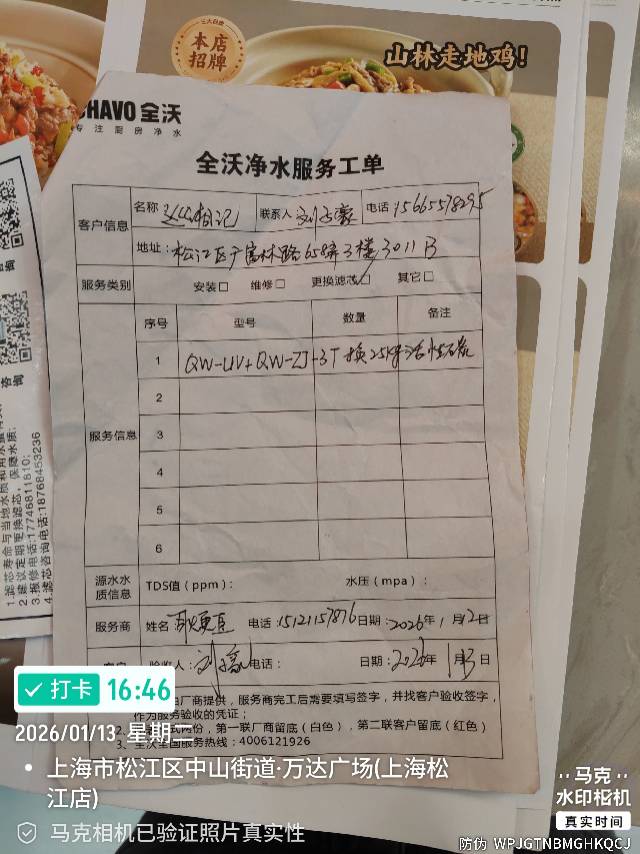 三大自选
本店
招牌
山林走地鸡!
CHAVO 全沃
专注厨房净水
全沃净水服务工单
客户信息
名称
联系人
电话 15665578295
地址: 松江区广富林路658弄3楼3011B
服务类别 安装□ 维修□ 更换滤芯☑ 其它□
服务信息
序号 型号 数量 备注
1 QW-UV+QW-ZJ-3T 换25kg活性炭
2
3
4
5
6
源水水质信息 TDS值(ppm): 水压(mpa):
服务商 姓名 电话:15121157876 日期:2026年1月12日
验收人: 电话: 日期:2026年1月13日
厂商提供,服务商完工后需要填写签字,并找客户验收签字,
作为服务验收的凭证;
式两份,第一联厂商留底(白色),第二联客户留底(红色)
3、全沃全国服务热线:4006121926
咨询
咨询
1.滤芯寿命与当地水质和用水量
2.建议定期更换滤芯,保障水质;
3.报修电话:17746811810;
4.滤芯咨询电话:18768453236
打卡 16:46
2026/01/13 星期二
上海市松江区中山街道·万达广场(上海松
江店)
马克相机已验证照片真实性
马克
水印相机
真实时间
防伪 WPJGTNBMGHKQCJ